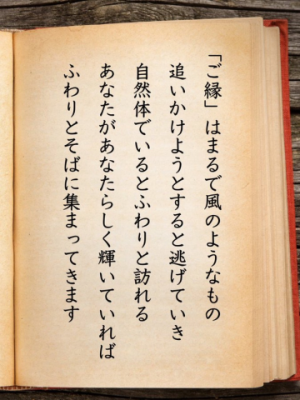 「ご縁」はまるで風のようなもの
追いかけようとすると逃げていき
自然体でいるとふわりと訪れる
あなたがあなたらしく輝いていれば
ふわりとそばに集まってきます